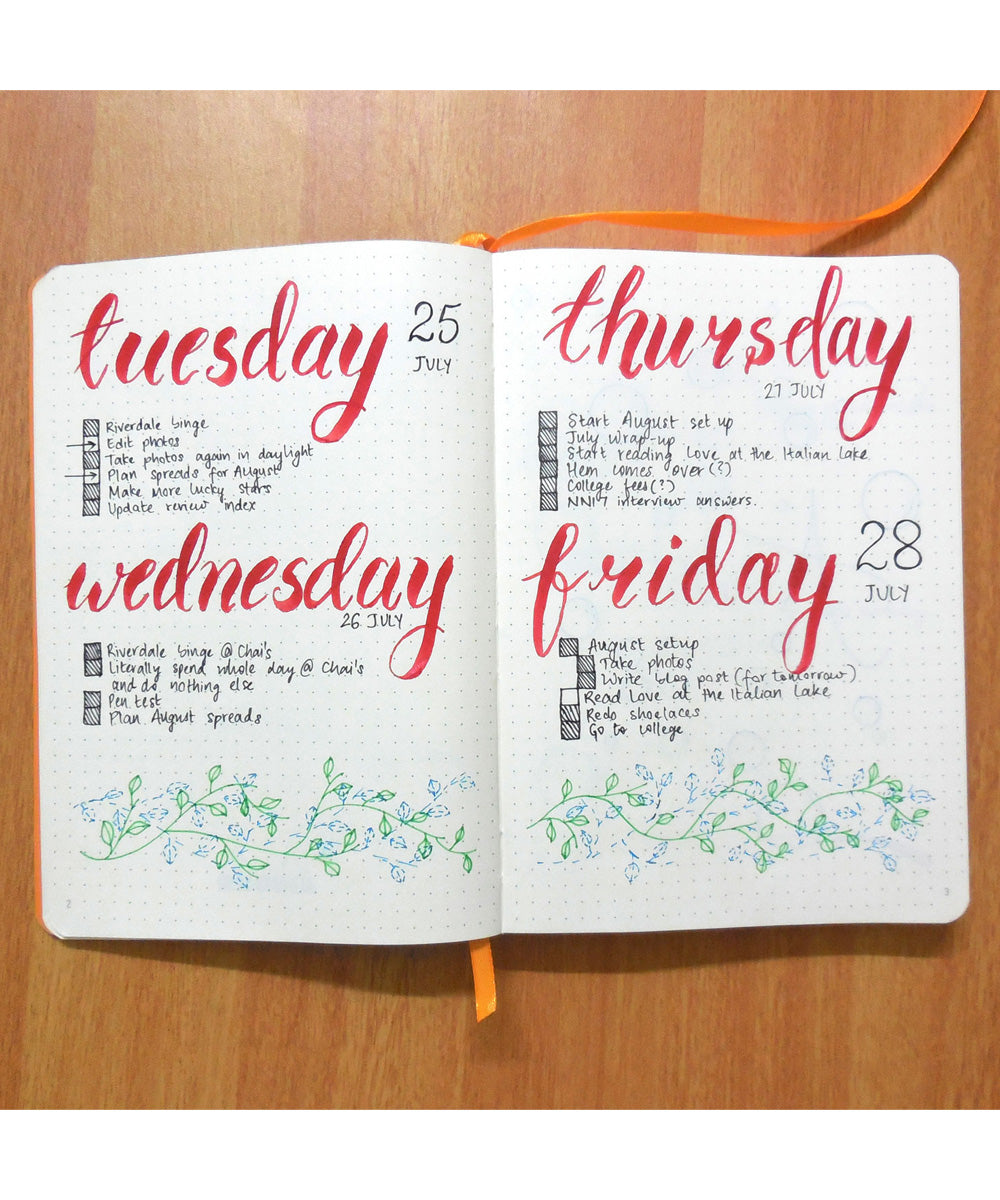 tuesday 25
JULY
Riverdale binge
Edit photos
Take photos again in daylight
Plan spreads for August
Make more lucky stars
Update review index
wednesday
26 JULY
Riverdale binge @ Chai's
Literally spend whole day @ Chai's
and do nothing else
Pen test
Plan August spreads
2
thursday
27 JULY
Start August set up
July wrap-up
Start reading Love at the Italian Lake
Mem comes over (?)
College fees (?)
NN17 interview answers.
friday 28
JULY
August setup
Take photos
Write blog post (for tomorrow)
Read Love at the Italian Lake
Redo shoelaces
Go to college
3